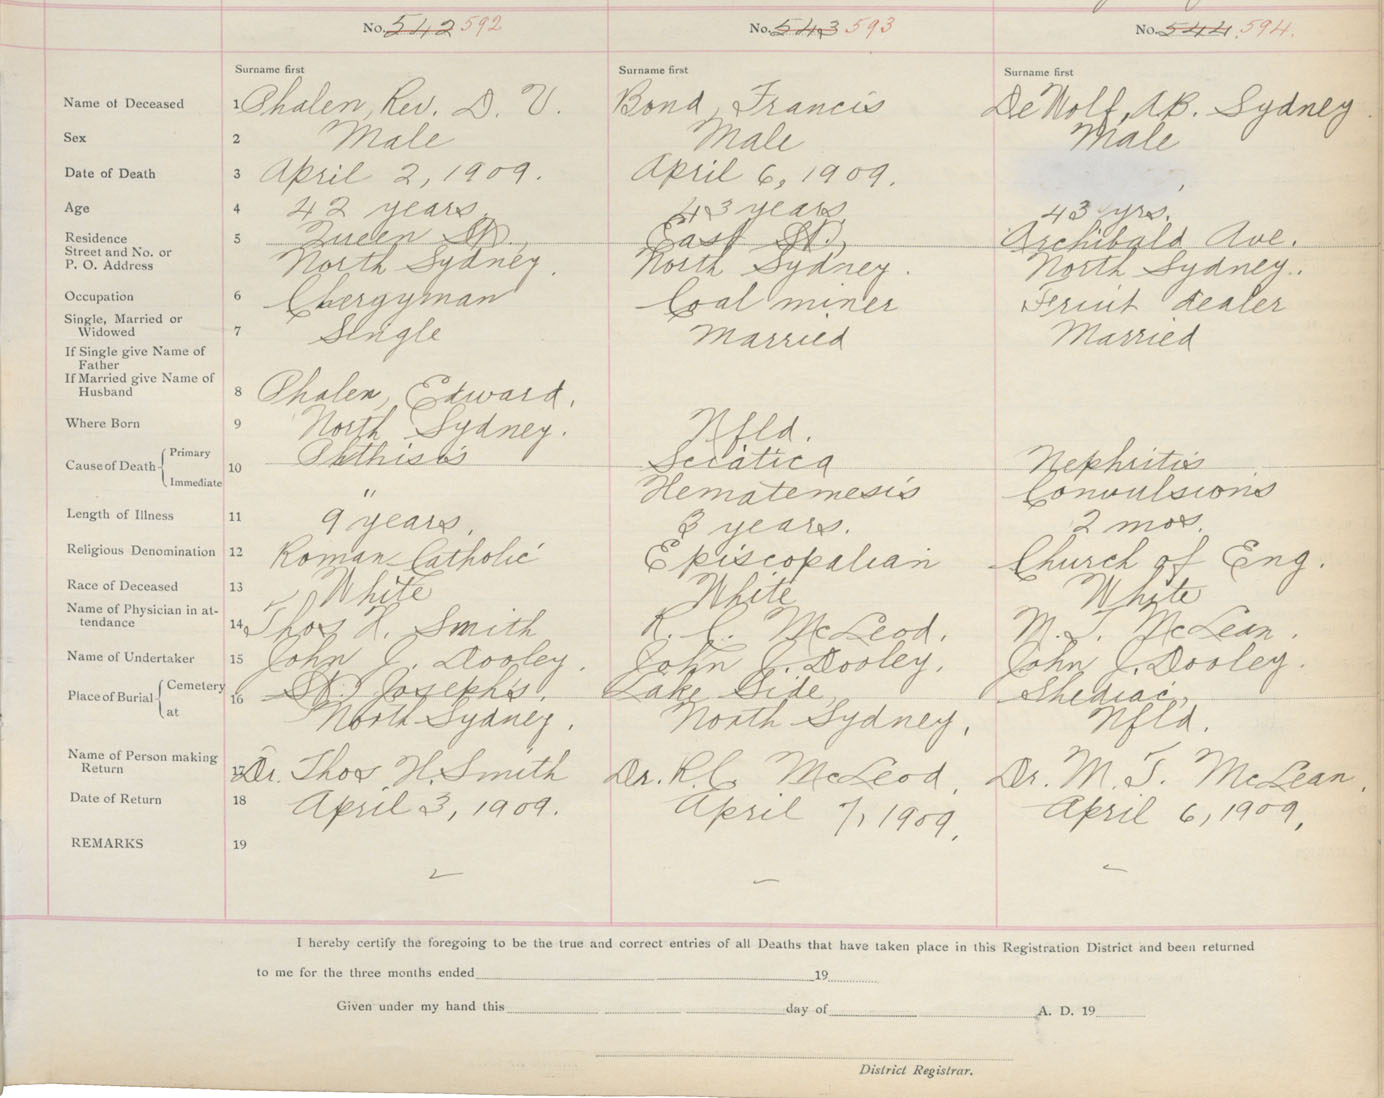 No. 542 592 No. 543 593 No. 544 594.
Surname first Surname first Surname first
Name of Deceased 1 Phalen, Rev. D. V. Bond, Francis DeWolf, AB. Sydney
Sex 2 Male Male Male
Date of Death 3 April 2, 1909. April 6, 1909.
Age 4 42 years. 43 years 43 yrs.
Residence 5 Queen St., East St., Archibald Ave.
Street and No. or
P. O. Address North Sydney. North Sydney. North Sydney.
Occupation 6 Clergyman Coal miner Fruit dealer
Single, Married or
Widowed 7 Single Married Married
If Single give Name of
Father
If Married give Name of
Husband 8 Phalen, Edward.
Where Born 9 North Sydney. Nfld.
Cause of Death Primary 10 Phthisis Sciatica Nephritis
Immediate " Hematemesis Convulsions
Length of Illness 11 9 years. 3 years. 2 mos.
Religious Denomination 12 Roman Catholic Episcopalian Church of Eng.
Race of Deceased 13 White White White
Name of Physician in at-
tendance 14 Thos H. Smith R. C. McLeod. M. T. McLean.
Name of Undertaker 15 John J. Dooley. John J. Dooley. John J. Dooley.
Place of Burial Cemetery 16 St. Joseph's. Lake Side, Shediac,
at North Sydney. North Sydney. Nfld.
Name of Person making
Return 17 Dr. Thos H. Smith Dr. R. C. McLeod. Dr. M. T. McLean.
Date of Return 18 April 3, 1909. April 7, 1909. April 6, 1909.
REMARKS 19
I hereby certify the foregoing to be the true and correct entries of all Deaths that have taken place in this Registration District and been returned
to me for the three months ended 19
Given under my hand this day of A. D. 19
District Registrar.